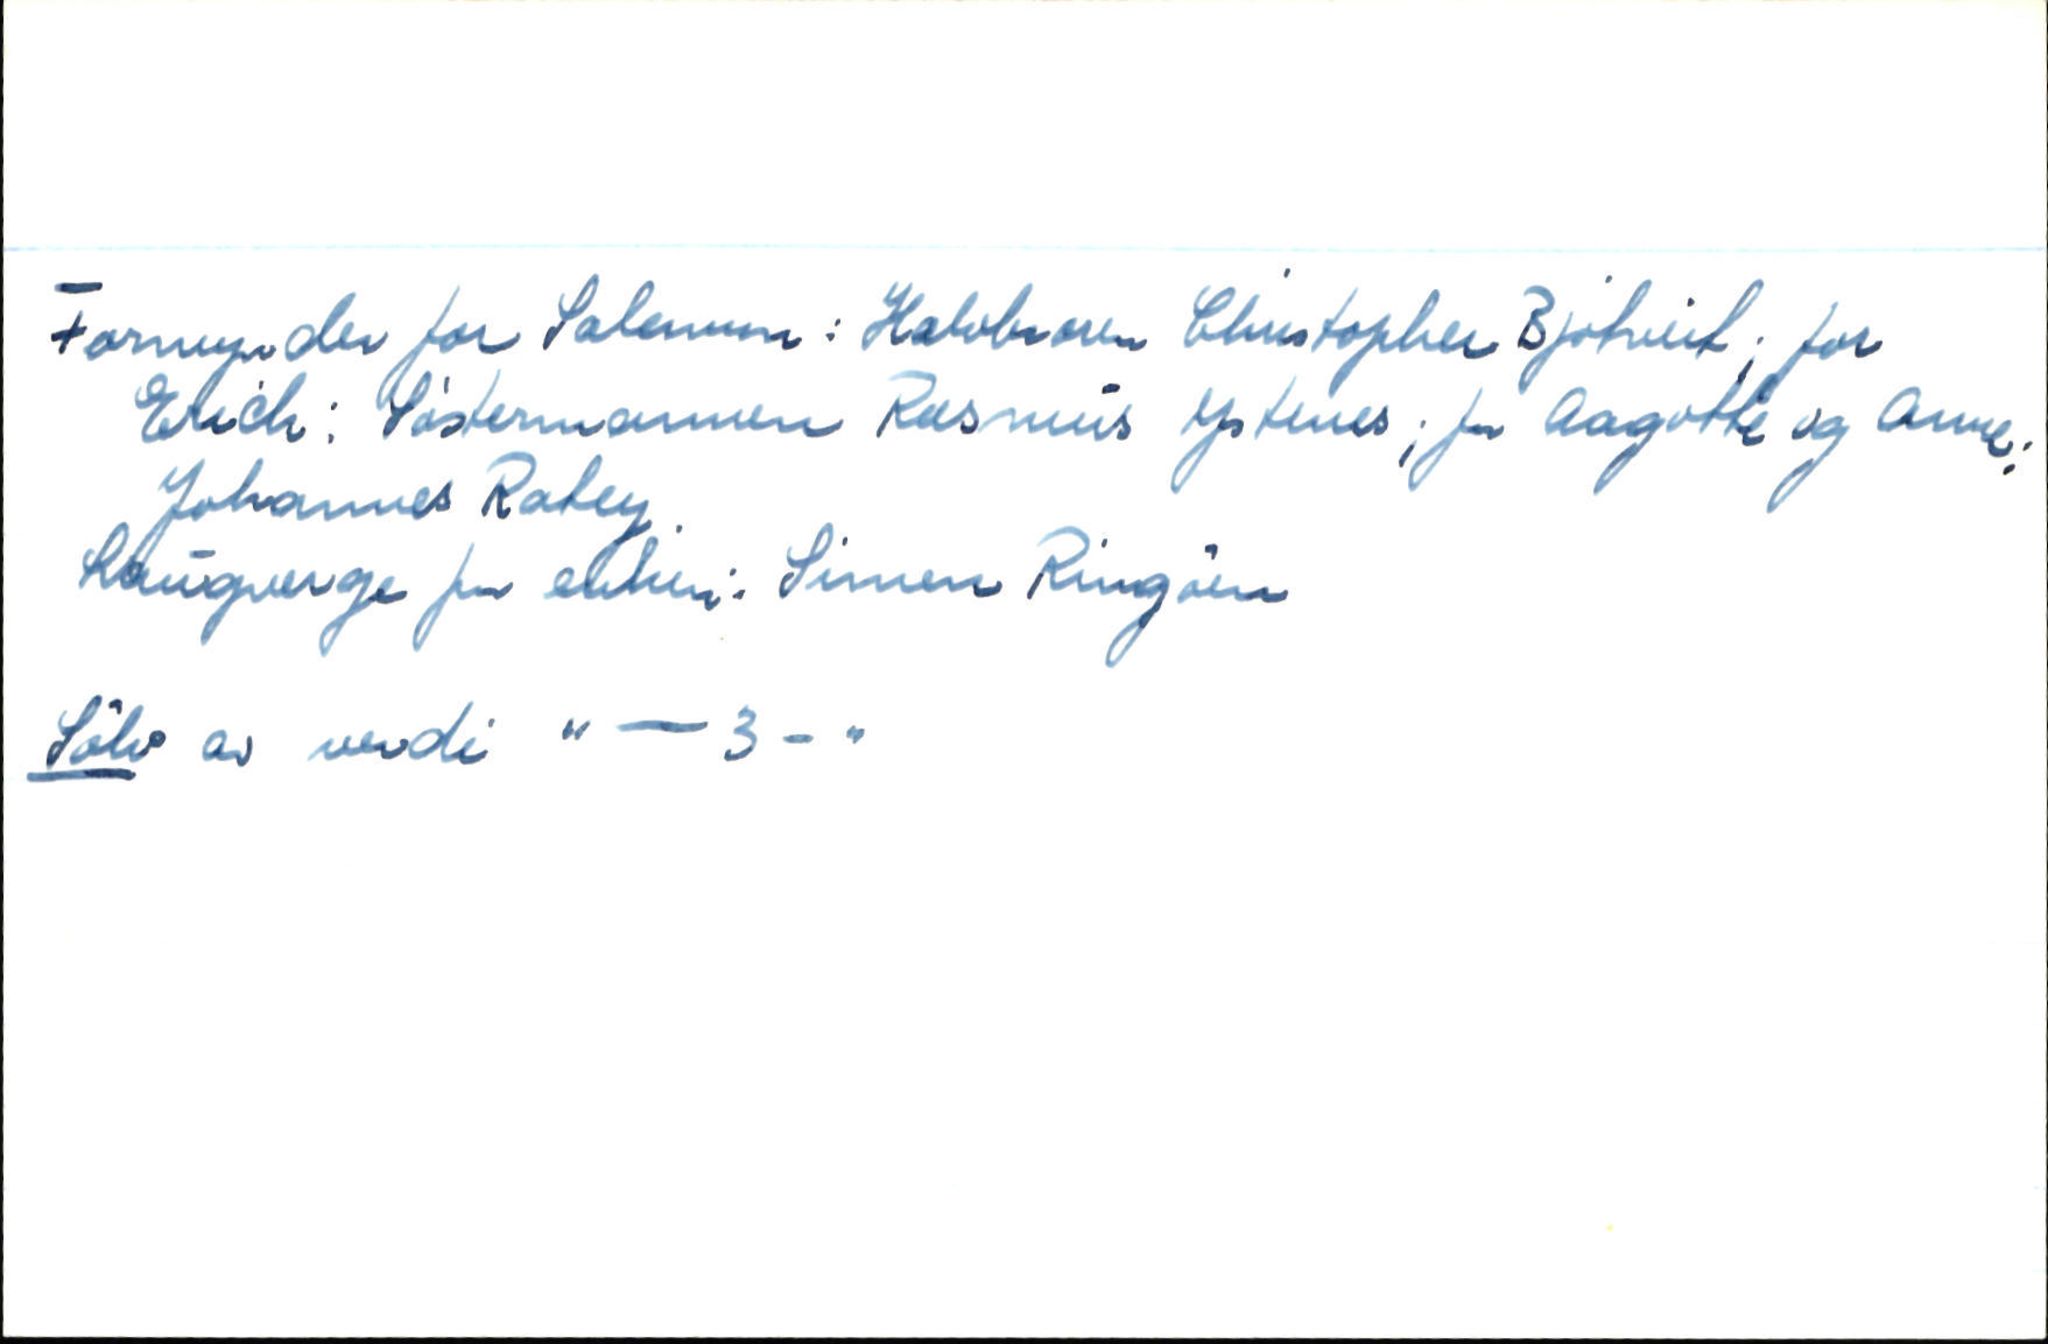 Formynder for Salamun: Halvbroren Christopher Bjötveit; for
Erich: Söstermannen Rasmus Ystenes; for Aagothe og Anne:
Johannes Røtley.
Laugverge for enken: Simen Ringöen
Sölv av verdi " — 3 - "